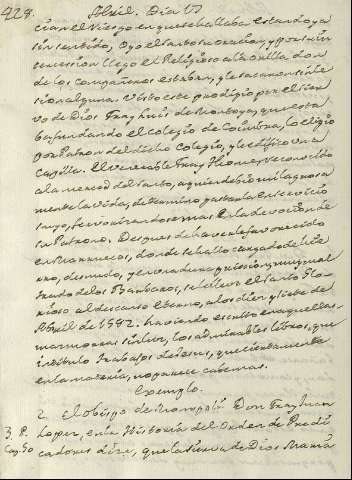 428. Abril. Dia 17
cian el riesgo en que se hallaba estando ya
sin sentido, oyo el santo su oracion, y por su in
tercession llegò el Religioso a la orilla don
de los compañeros estaban, y le sacaron sin le
sion alguna. Visto este prodigio por el sier
vo de Dios Fray Luis de Montoya, que esta
ba fundando el Colegio de Coimbra, lo eligió
por Patron del dicho Colegio, y le edificó una
capilla. El venerable Fray Thome, reconocido
a la merced del santo, a quien debio milagrosa
mente la vida, determino gastarla en servicio
suyo, fervorizandose mas en la devoción de
su Patrono. Despues de haver
en Marruecos, donde se hallo cargado de hie
rro, desnudo, y en una dura prision, muy mal
tratado de los Barbaros, se le llevó el santo Glo
rioso al descanso eterno, a los diez y siete de
Abril de 1582. haviendo escrito en aquellas
mazmorras sin luz, los admirables libros, que
intitulo Trabajos de Jesus, que ciertamente
en la materia, no parece cabe mas.
Exemplo.
2. El obispo de Monopoli Don Fray Juan
3. P. Lopez, en la Historia del Orden de Predi
Cap. 50 cadores dice, que la sierva de Dios Maria